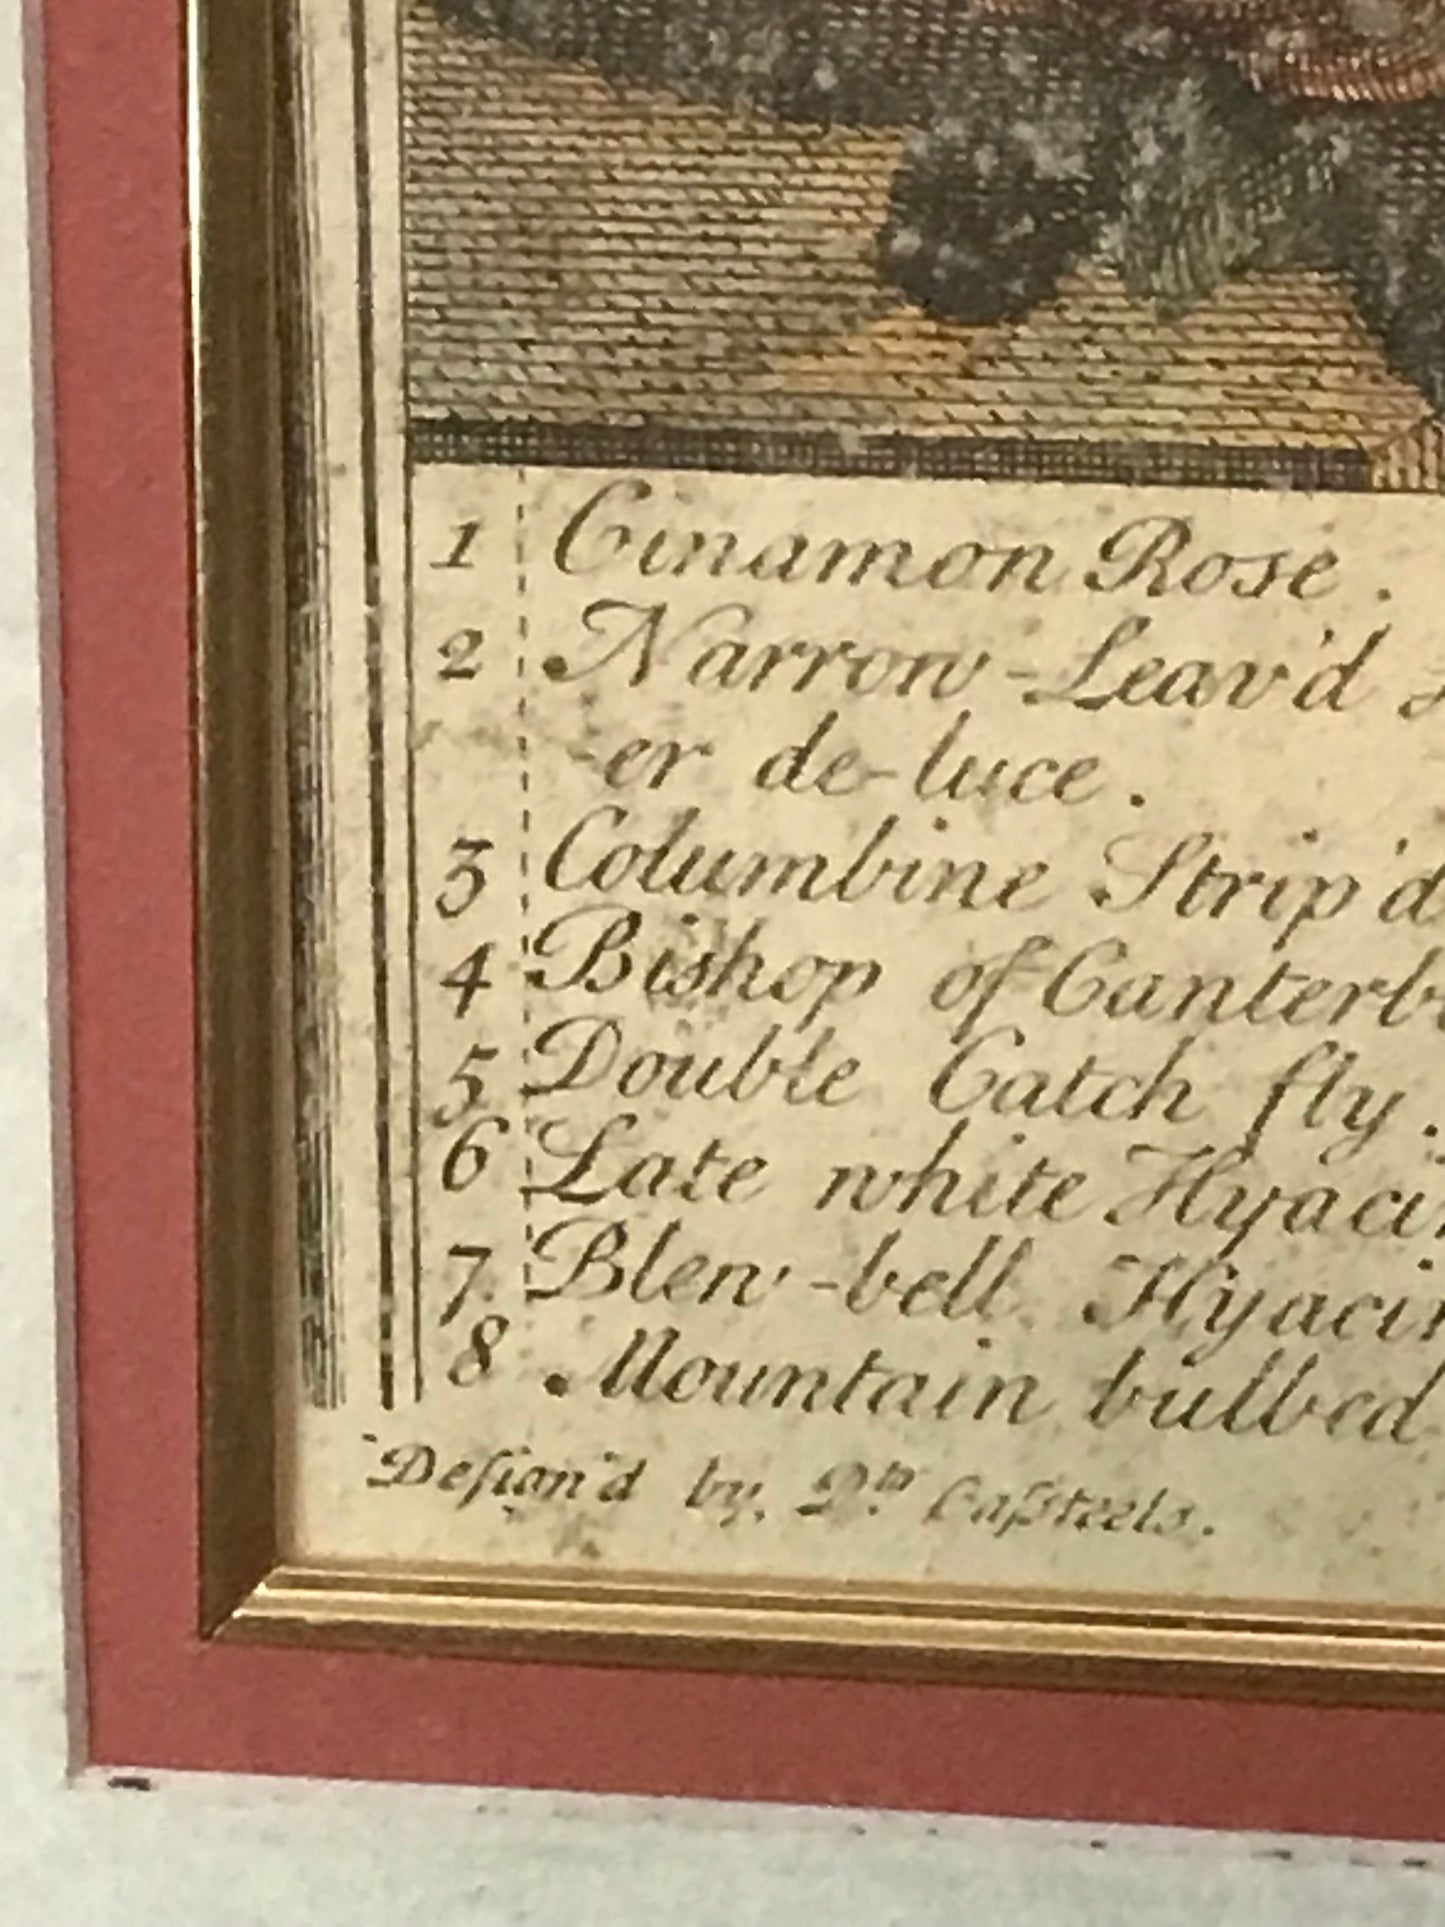 1 Cinamon Rose.
2 Narrow-Leav'd
-er de-luce.
3 Columbine Strip'd
4 Bishop of Canterb
5 Double Catch fly.
6 Late white Hyacin
7 Blew-bell Hyacin
8 Mountain bulbed
Deſign'd by, Ptr. Caſteels.